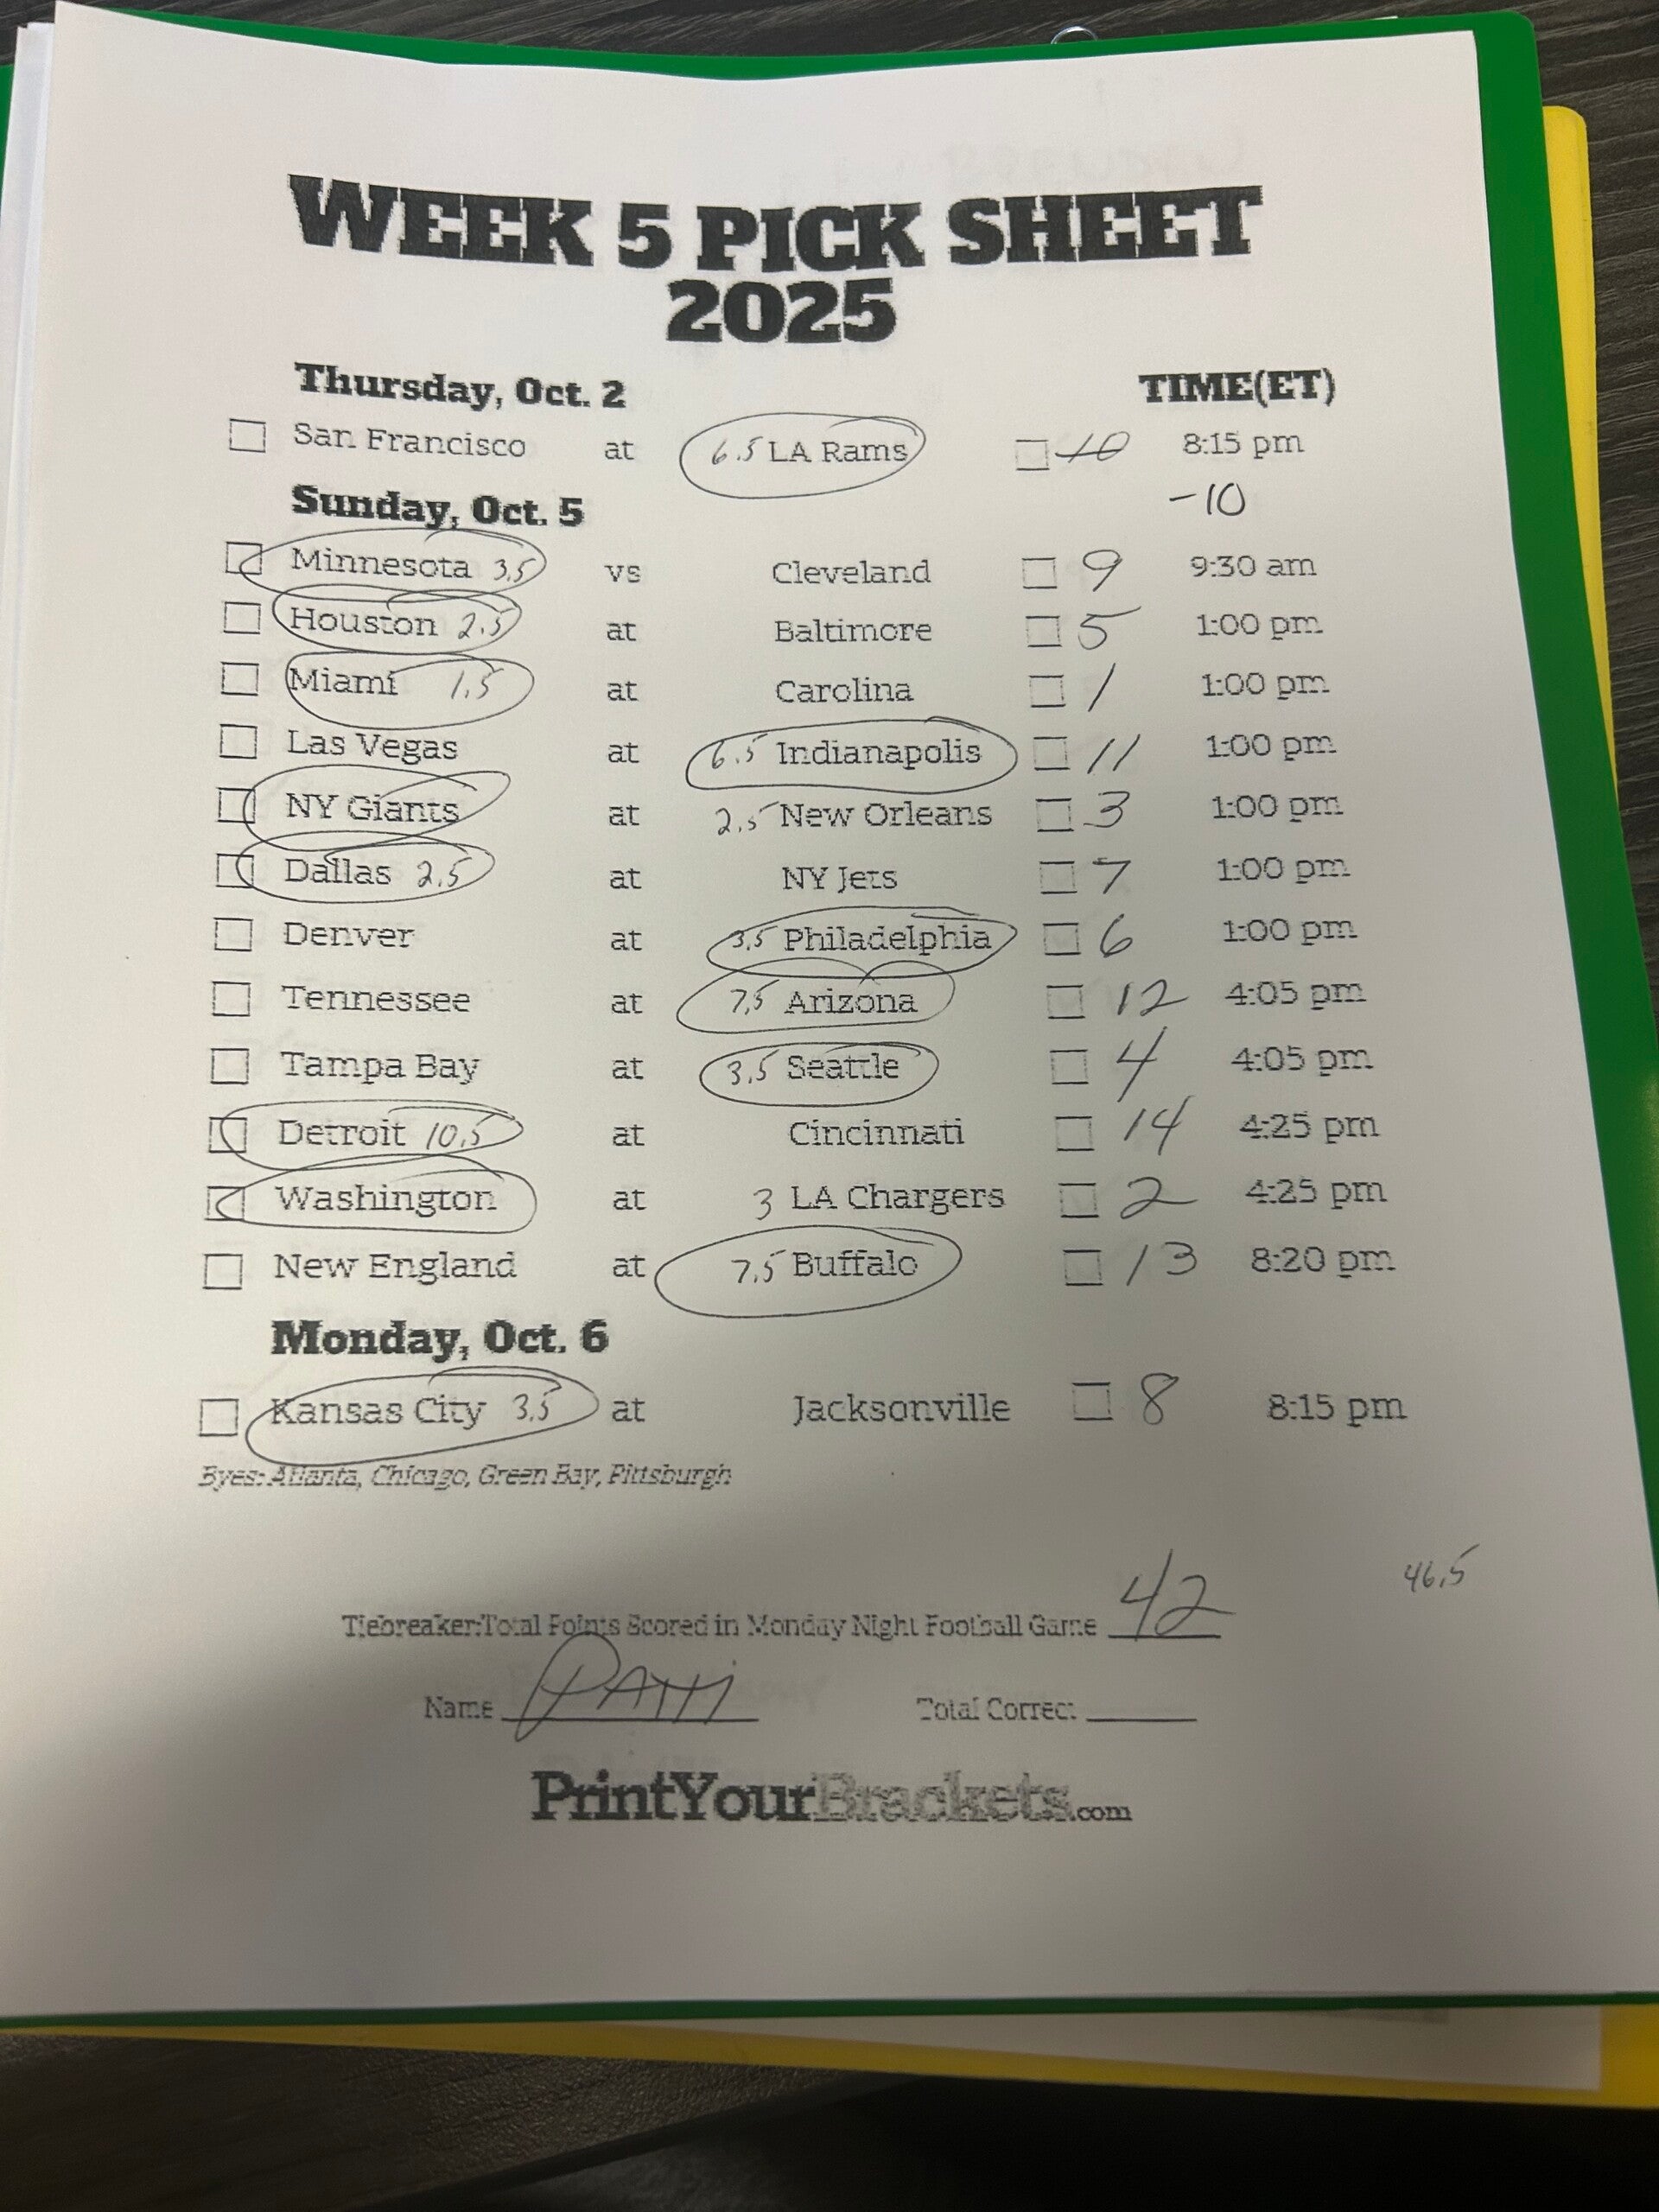 WEEK 5 PICK SHEET
2025
Thursday, Oct. 2 TIME(ET)
San Francisco at 6.5 LA Rams 10 8:15 pm
-10
Sunday, Oct. 5
Minnesota 3.5 vs Cleveland 9 9:30 am
Houston 2.5 at Baltimore 5 1:00 pm
Miami 1.5 at Carolina 1 1:00 pm
Las Vegas at 6.5 Indianapolis 11 1:00 pm
NY Giants at 2.5 New Orleans 3 1:00 pm
Dallas 2.5 at NY Jets 7 1:00 pm
Denver at 3.5 Philadelphia 6 1:00 pm
Tennessee at 7.5 Arizona 12 4:05 pm
Tampa Bay at 3.5 Seattle 4 4:05 pm
Detroit 10.5 at Cincinnati 14 4:25 pm
Washington at 3 LA Chargers 2 4:25 pm
New England at 7.5 Buffalo 13 8:20 pm
Monday, Oct. 6
Kansas City 3.5 at Jacksonville 8 8:15 pm
Byes: Atlanta, Chicago, Green Bay, Pittsburgh
46.5
Tiebreaker:Total Points Scored in Monday Night Football Game 42
Name PATTI Total Correct
PrintYourBrackets.com